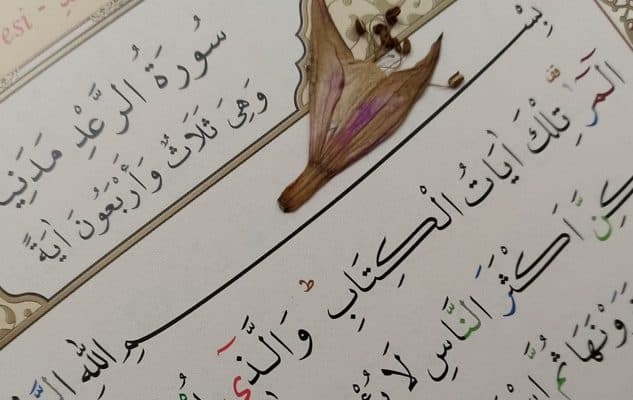 esi -
سُورَةُ الرَّعْدِ مَدَنِيَّ
وَهِىَ ثَلَاثٌ وَاَرْبَعُونَ اٰيَةً
بِسْمِ اللّٰهِ
الٓمٓرٰ تِلْكَ اٰيَاتُ الْكِتَابِ ط وَالَّذٓى
كِنَّ اَكْثَرَ النَّاسِ لَا
وْنَهَا ثُمَّ